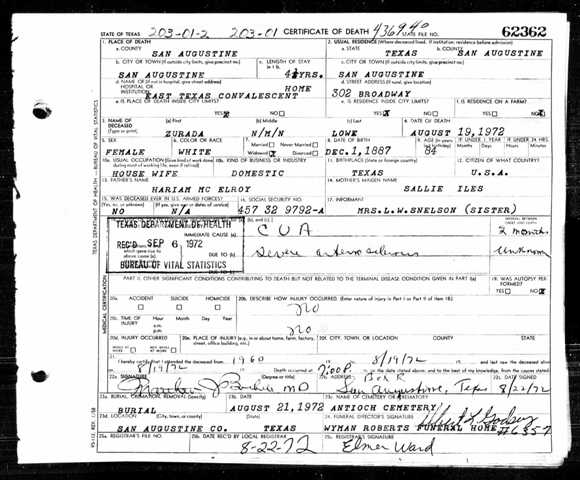 STATE OF TEXAS 203-01-2 203-01 CERTIFICATE OF DEATH 436940 STATE FILE NO. 62362
1. PLACE OF DEATH 2. USUAL RESIDENCE (Where deceased lived. If institution, residence before admission)
a. COUNTY SAN AUGUSTINE a. STATE TEXAS b. COUNTY SAN AUGUSTINE
b. CITY OR TOWN (If outside city limits, give precinct no.) c. LENGTH OF STAY c. CITY OR TOWN (If outside city limits, give precinct no.)
SAN AUGUSTINE 4½YRS. SAN AUGUSTINE
d. NAME OF (If not in hospital, give street address) HOSPITAL OR INSTITUTION HOME d. STREET ADDRESS (If rural, give location)
EAST TEXAS CONVALESCENT 302 BROADWAY
e. IS PLACE OF DEATH INSIDE CITY LIMITS? e. IS RESIDENCE INSIDE CITY LIMITS? f. IS RESIDENCE ON A FARM?
YES X NO YES X NO YES NO X
3. NAME OF DECEASED (Type or print) (a) First (b) Middle (c) Last 4. DATE OF DEATH
ZURADA N/M/N LOWE AUGUST 19, 1972
5. SEX 6. COLOR OR RACE 7. Married Never Married 8. DATE OF BIRTH 9. AGE IF UNDER 1 YEAR IF UNDER 24 HRS.
FEMALE WHITE Widowed Divorced DEC.1,1887 84
10a. USUAL OCCUPATION (Give kind of work done during most of working life, even if retired) 10b. KIND OF BUSINESS OR INDUSTRY 11. BIRTHPLACE (State or foreign country) 12. CITIZEN OF WHAT COUNTRY?
HOUSE WIFE DOMESTIC TEXAS U.S.A.
13. FATHER'S NAME 14. MOTHER'S MAIDEN NAME
HARIAM MC ELROY SALLIE ILES
15. WAS DECEASED EVER IN U.S. ARMED FORCES? 16. SOCIAL SECURITY NO. 17. INFORMANT
NO N/A 457 32 9792-A MRS.L.W.SNELSON (SISTER)
TEXAS DEPARTMENT OF HEALTH
IMMEDIATE CAUSE (a) C V A 2 months
REC'D SEP 6 1972
DUE TO (b) Severe arteriosclerosis Unknown
DUE TO (c)
BUREAU OF VITAL STATISTICS
PART II. OTHER SIGNIFICANT CONDITIONS CONTRIBUTING TO DEATH BUT NOT RELATED TO THE TERMINAL DISEASE CONDITION GIVEN IN PART I(a) 19. WAS AUTOPSY PERFORMED?
YES NO X
20a. ACCIDENT SUICIDE HOMICIDE 20b. DESCRIBE HOW INJURY OCCURRED (Enter nature of injury in Part I or Part II of item 18)
no
20c. TIME OF INJURY Hour Month Day Year a.m. p.m.
no
20d. INJURY OCCURRED 20e. PLACE OF INJURY (e.g. in or about home, farm, factory, street, office building, etc.) 20f. CITY, TOWN, OR LOCATION COUNTY STATE
21. I hereby certify that I attended the deceased from 1960 8/19/72 and last saw the deceased alive
8/19/72 Death occurred at 7:00 P. m. on the date stated above, and to the best of my knowledge, from the causes stated.
22a. SIGNATURE (Degree or title) 22b. ADDRESS Box R 22c. DATE SIGNED
MD San Augustine, Tex 8/22/72
23a. BURIAL, CREMATION, REMOVAL (Specify) 23b. DATE 23c. NAME OF CEMETERY OR CREMATORY
BURIAL AUGUST 21, 1972 ANTIOCH CEMETERY
23d. LOCATION (City, town, or county) (State) 24. FUNERAL DIRECTOR'S SIGNATURE
SAN AUGUSTINE CO. TEXAS WYMAN ROBERTS FUNERAL HOME #6357
25a. REGISTRAR'S FILE NO. 25b. DATE REC'D BY LOCAL REGISTRAR 25c. REGISTRAR'S SIGNATURE
8-22-72 Elmer Ward
TEXAS DEPARTMENT OF HEALTH — BUREAU OF VITAL STATISTICS
MEDICAL CERTIFICATION